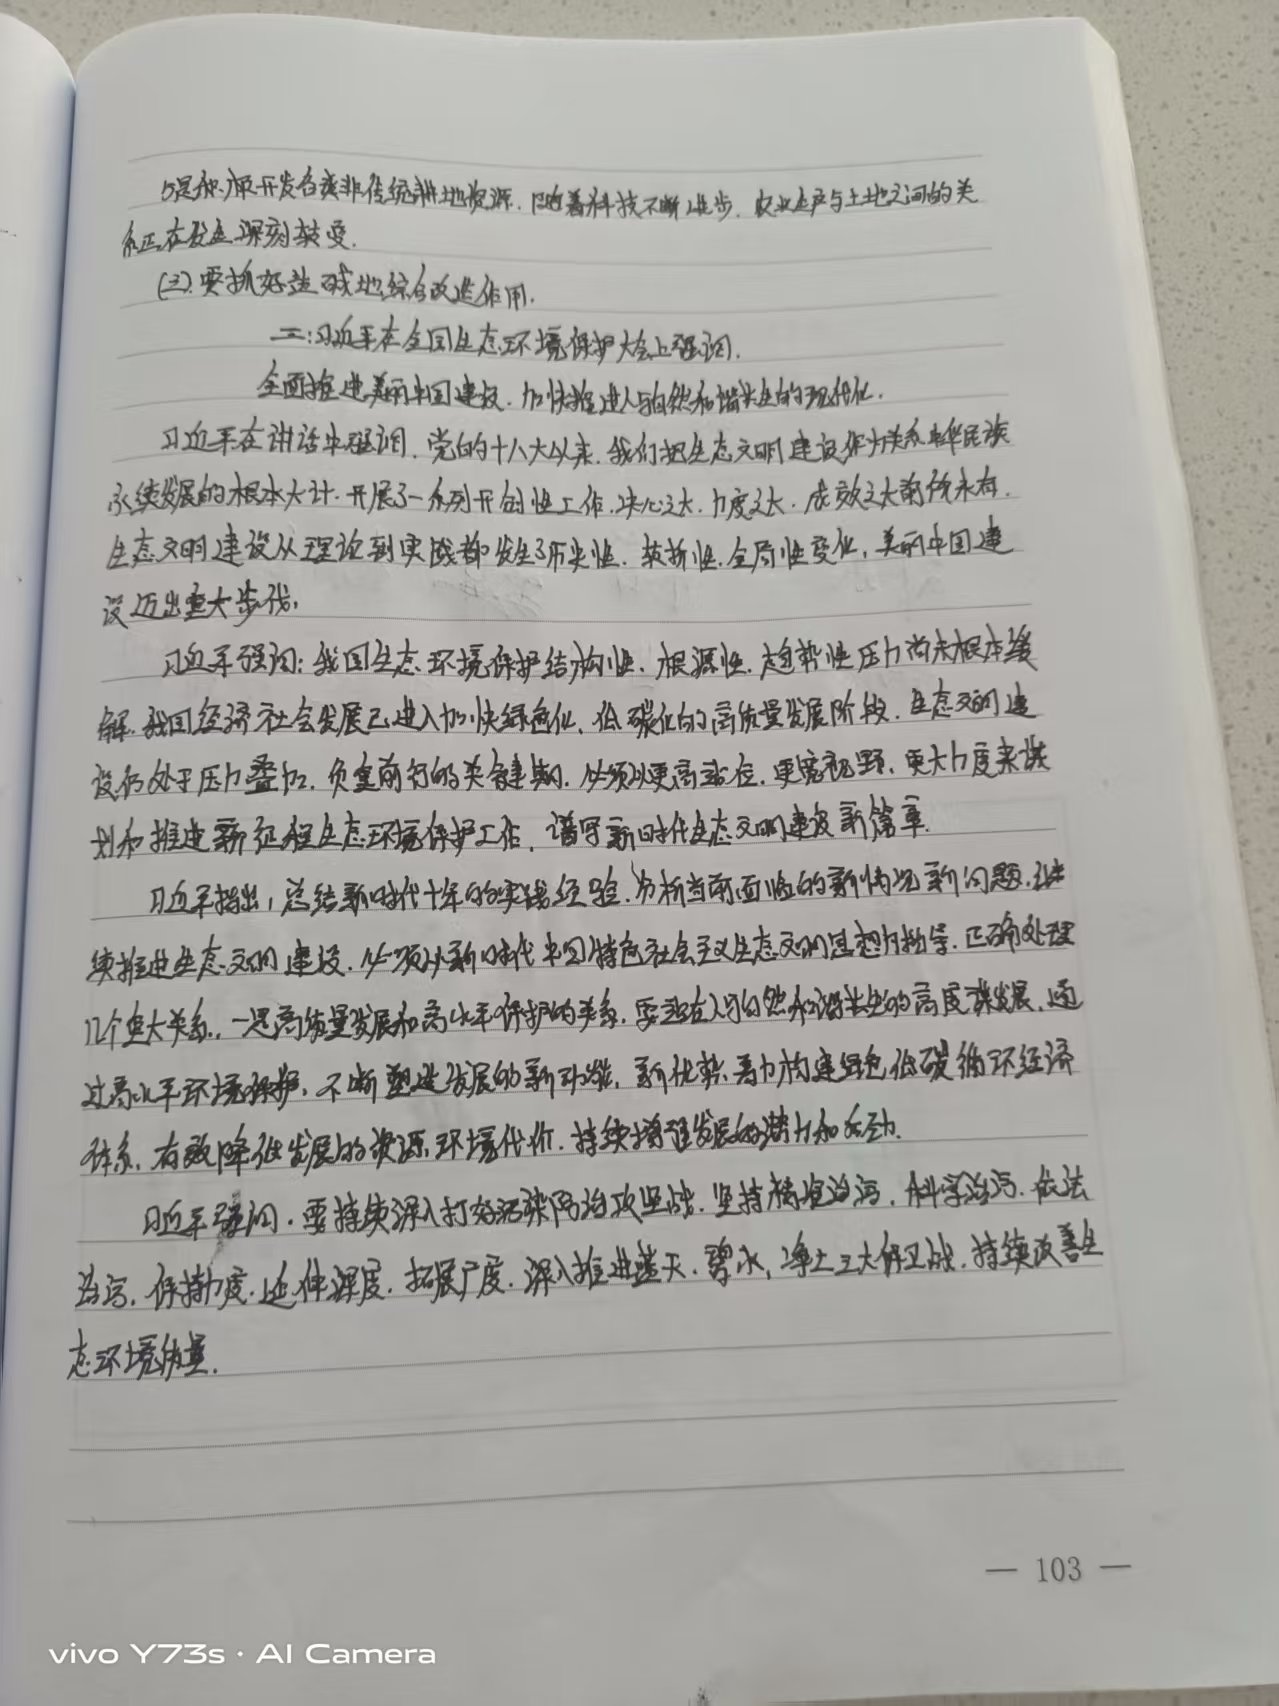 5是积极开发各类非传统耕地资源.随着科技不断进步.农业生产与土地之间的关
系正在发生深刻转变.
(三).要抓好盐碱地综合改造作用.
二:习近平在全国生态环境保护大会上强调.
全面推进美丽中国建设.加快推进人与自然和谐共生的现代化.
习近平在讲话中强调.党的十八大以来.我们把生态文明建设作为关系中华民族
永续发展的根本大计.开展了一系列开创性工作.决心之大.力度之大.成效之大前所未有.
生态文明建设从理论到实践都发生了历史性.转折性.全局性变化,美丽中国建
设迈出重大步伐,
习近平强调:我国生态环境保护结构性.根源性.趋势性压力尚未根本缓
解.我国经济社会发展已进入加快绿色化.低碳化的高质量发展阶段.生态文明建
设仍处于压力叠加.负重前行的关键期.必须以更高站位.更宽视野.更大力度来谋
划和推进新征程生态环境保护工作,谱写新时代生态文明建设新篇章.
习近平指出,总结新时代十年的实践经验.分析当前面临的新情况新问题.继
续推进生态文明建设.必须以新时代中国特色社会主义生态文明思想为指导.正确处理
几个重大关系.一是高质量发展和高水平保护的关系.要站在人与自然和谐共生的高度谋发展.通
过高水平环境保护.不断塑造发展的新动能,新优势.着力构建绿色低碳循环经济
体系.有效降低发展的资源环境代价.持续增强发展的潜力和后劲.
习近平强调.要持续深入打好污染防治攻坚战.坚持精准治污,科学治污.依法
治污.保持力度.延伸深度.拓展广度.深入推进蓝天.碧水,净土三大保卫战.持续改善生
态环境质量.
— 103 —
vivo Y73s · AI Camera